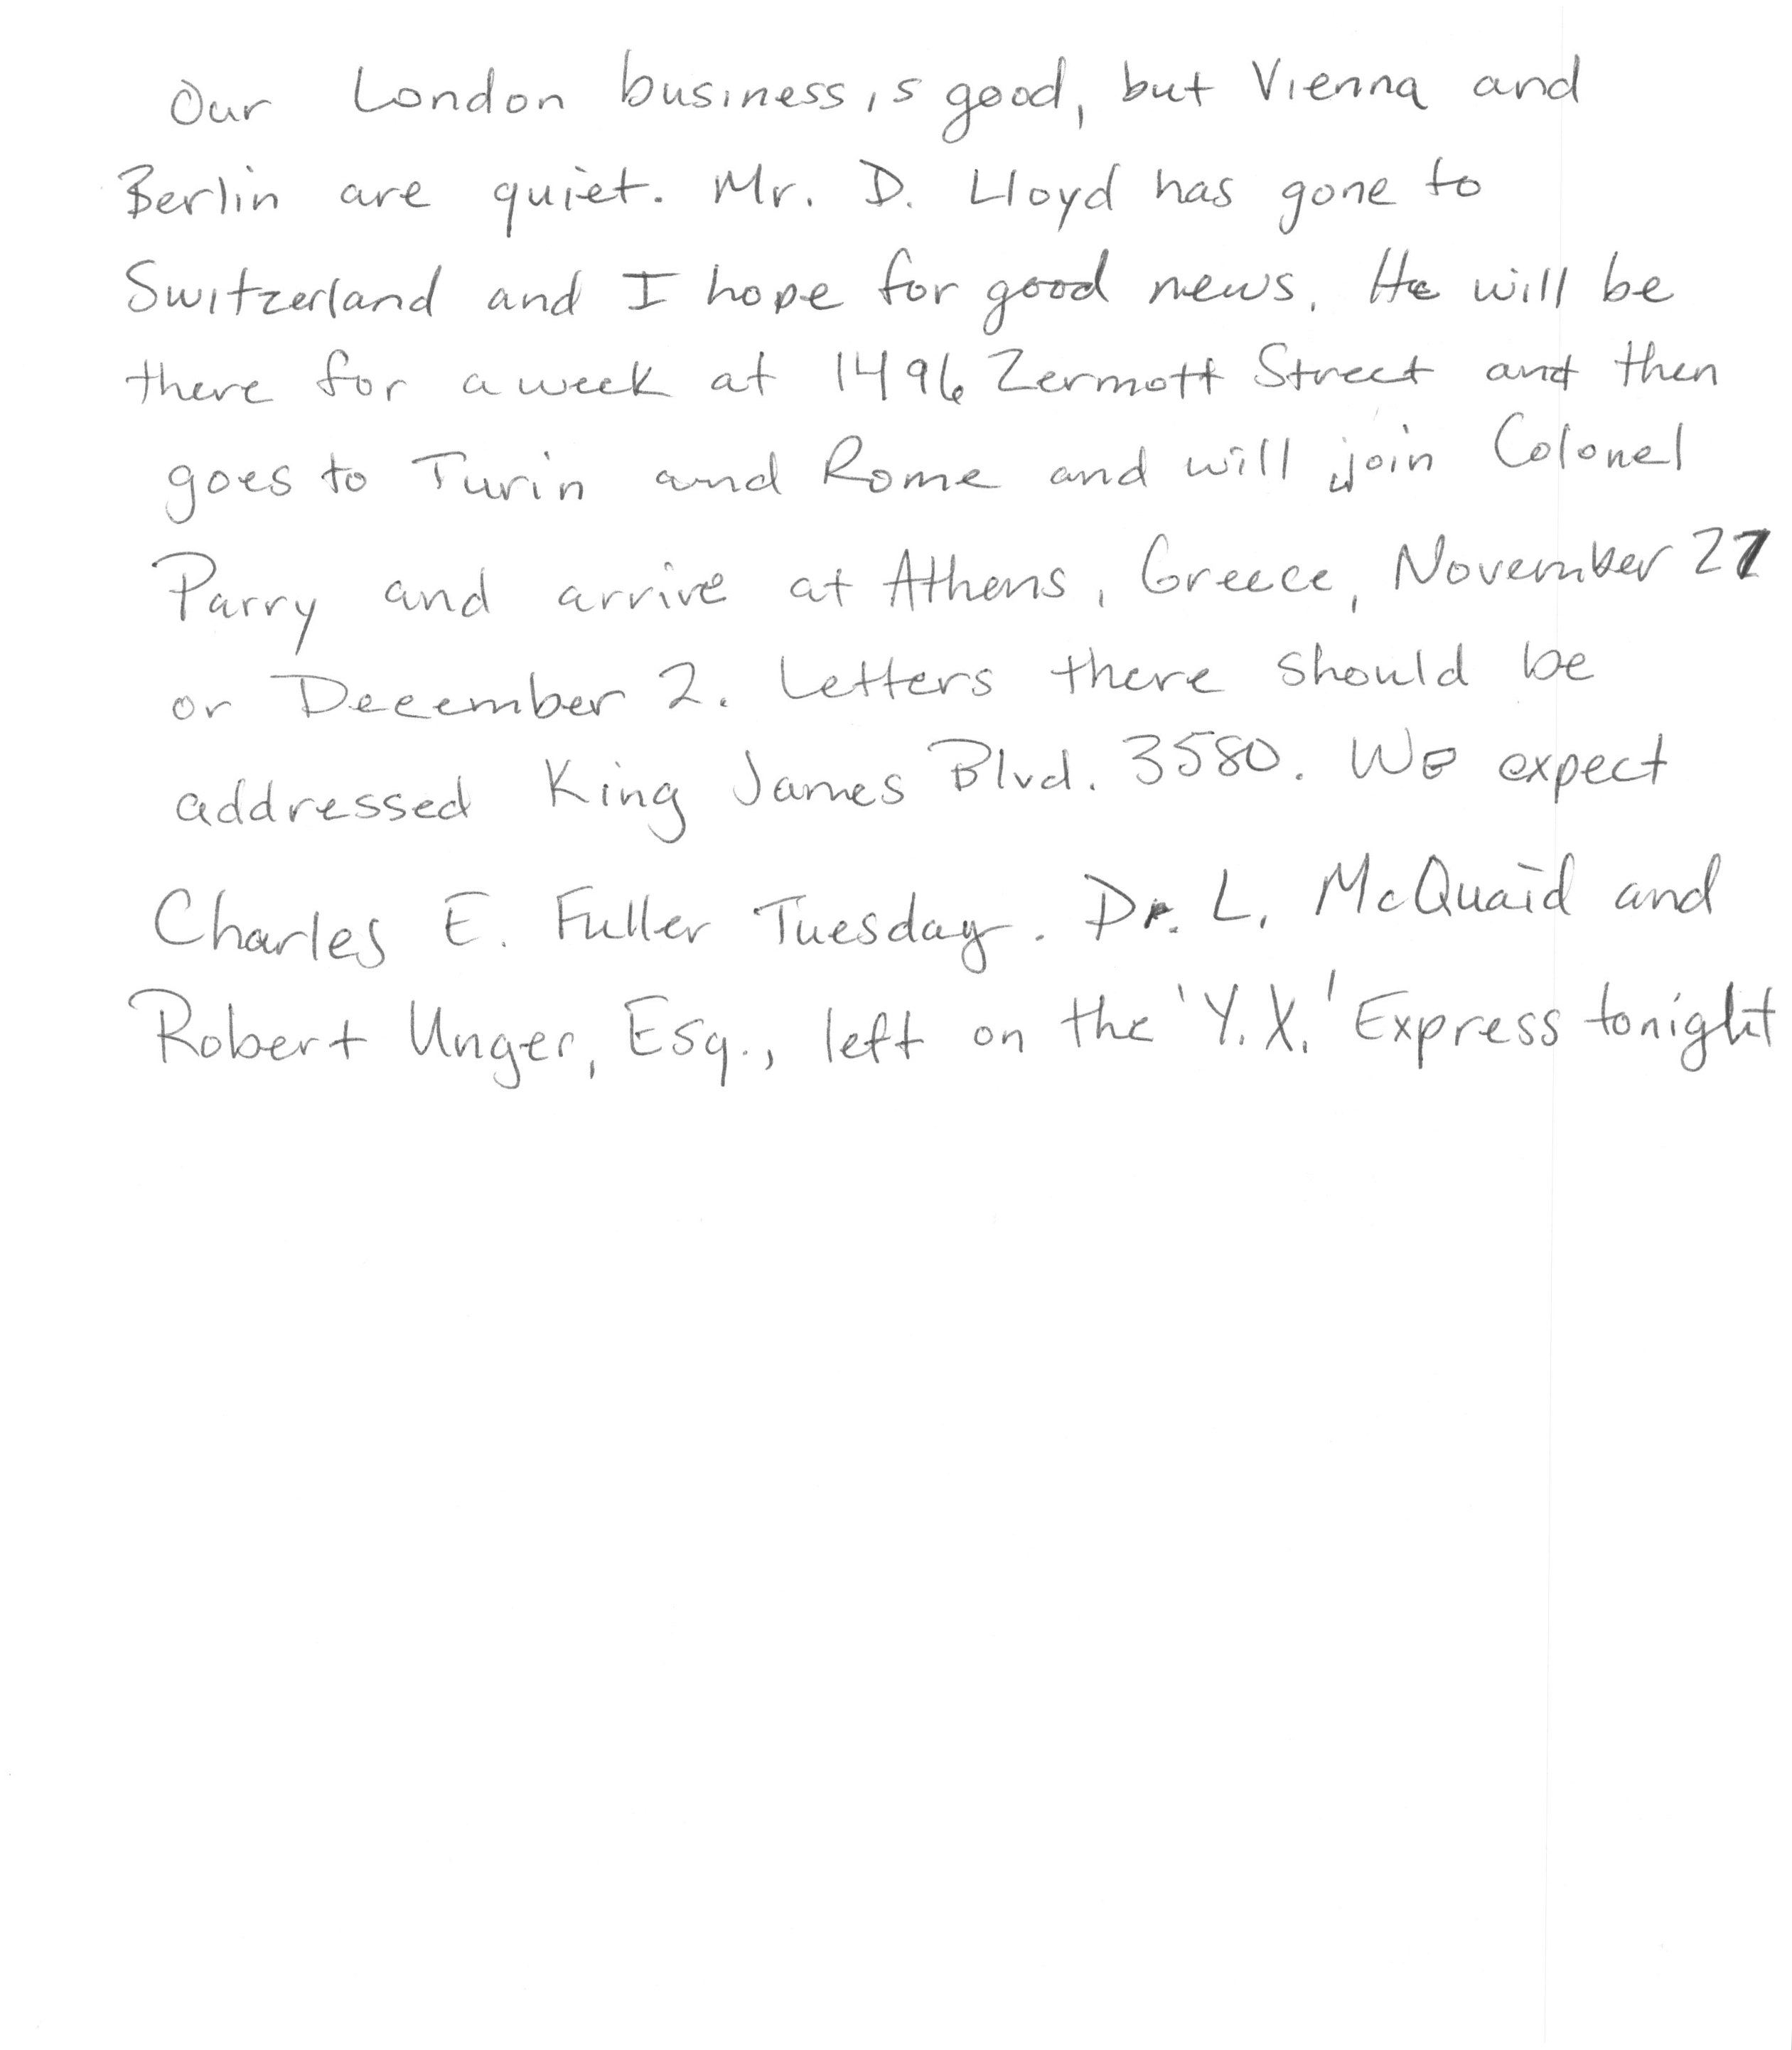 Our London business is good, but Vienna and
Berlin are quiet. Mr. D. Lloyd has gone to
Switzerland and I hope for good news. He will be
there for a week at 1496 Zermott Street and then
goes to Turin and Rome and will join Colonel
Parry and arrive at Athens, Greece, November 27
or December 2. Letters there should be
addressed King James Blvd. 3580. We expect
Charles E. Fuller Tuesday. Dr. L. McQuaid and
Robert Unger, Esq., left on the 'Y.X.' Express tonight